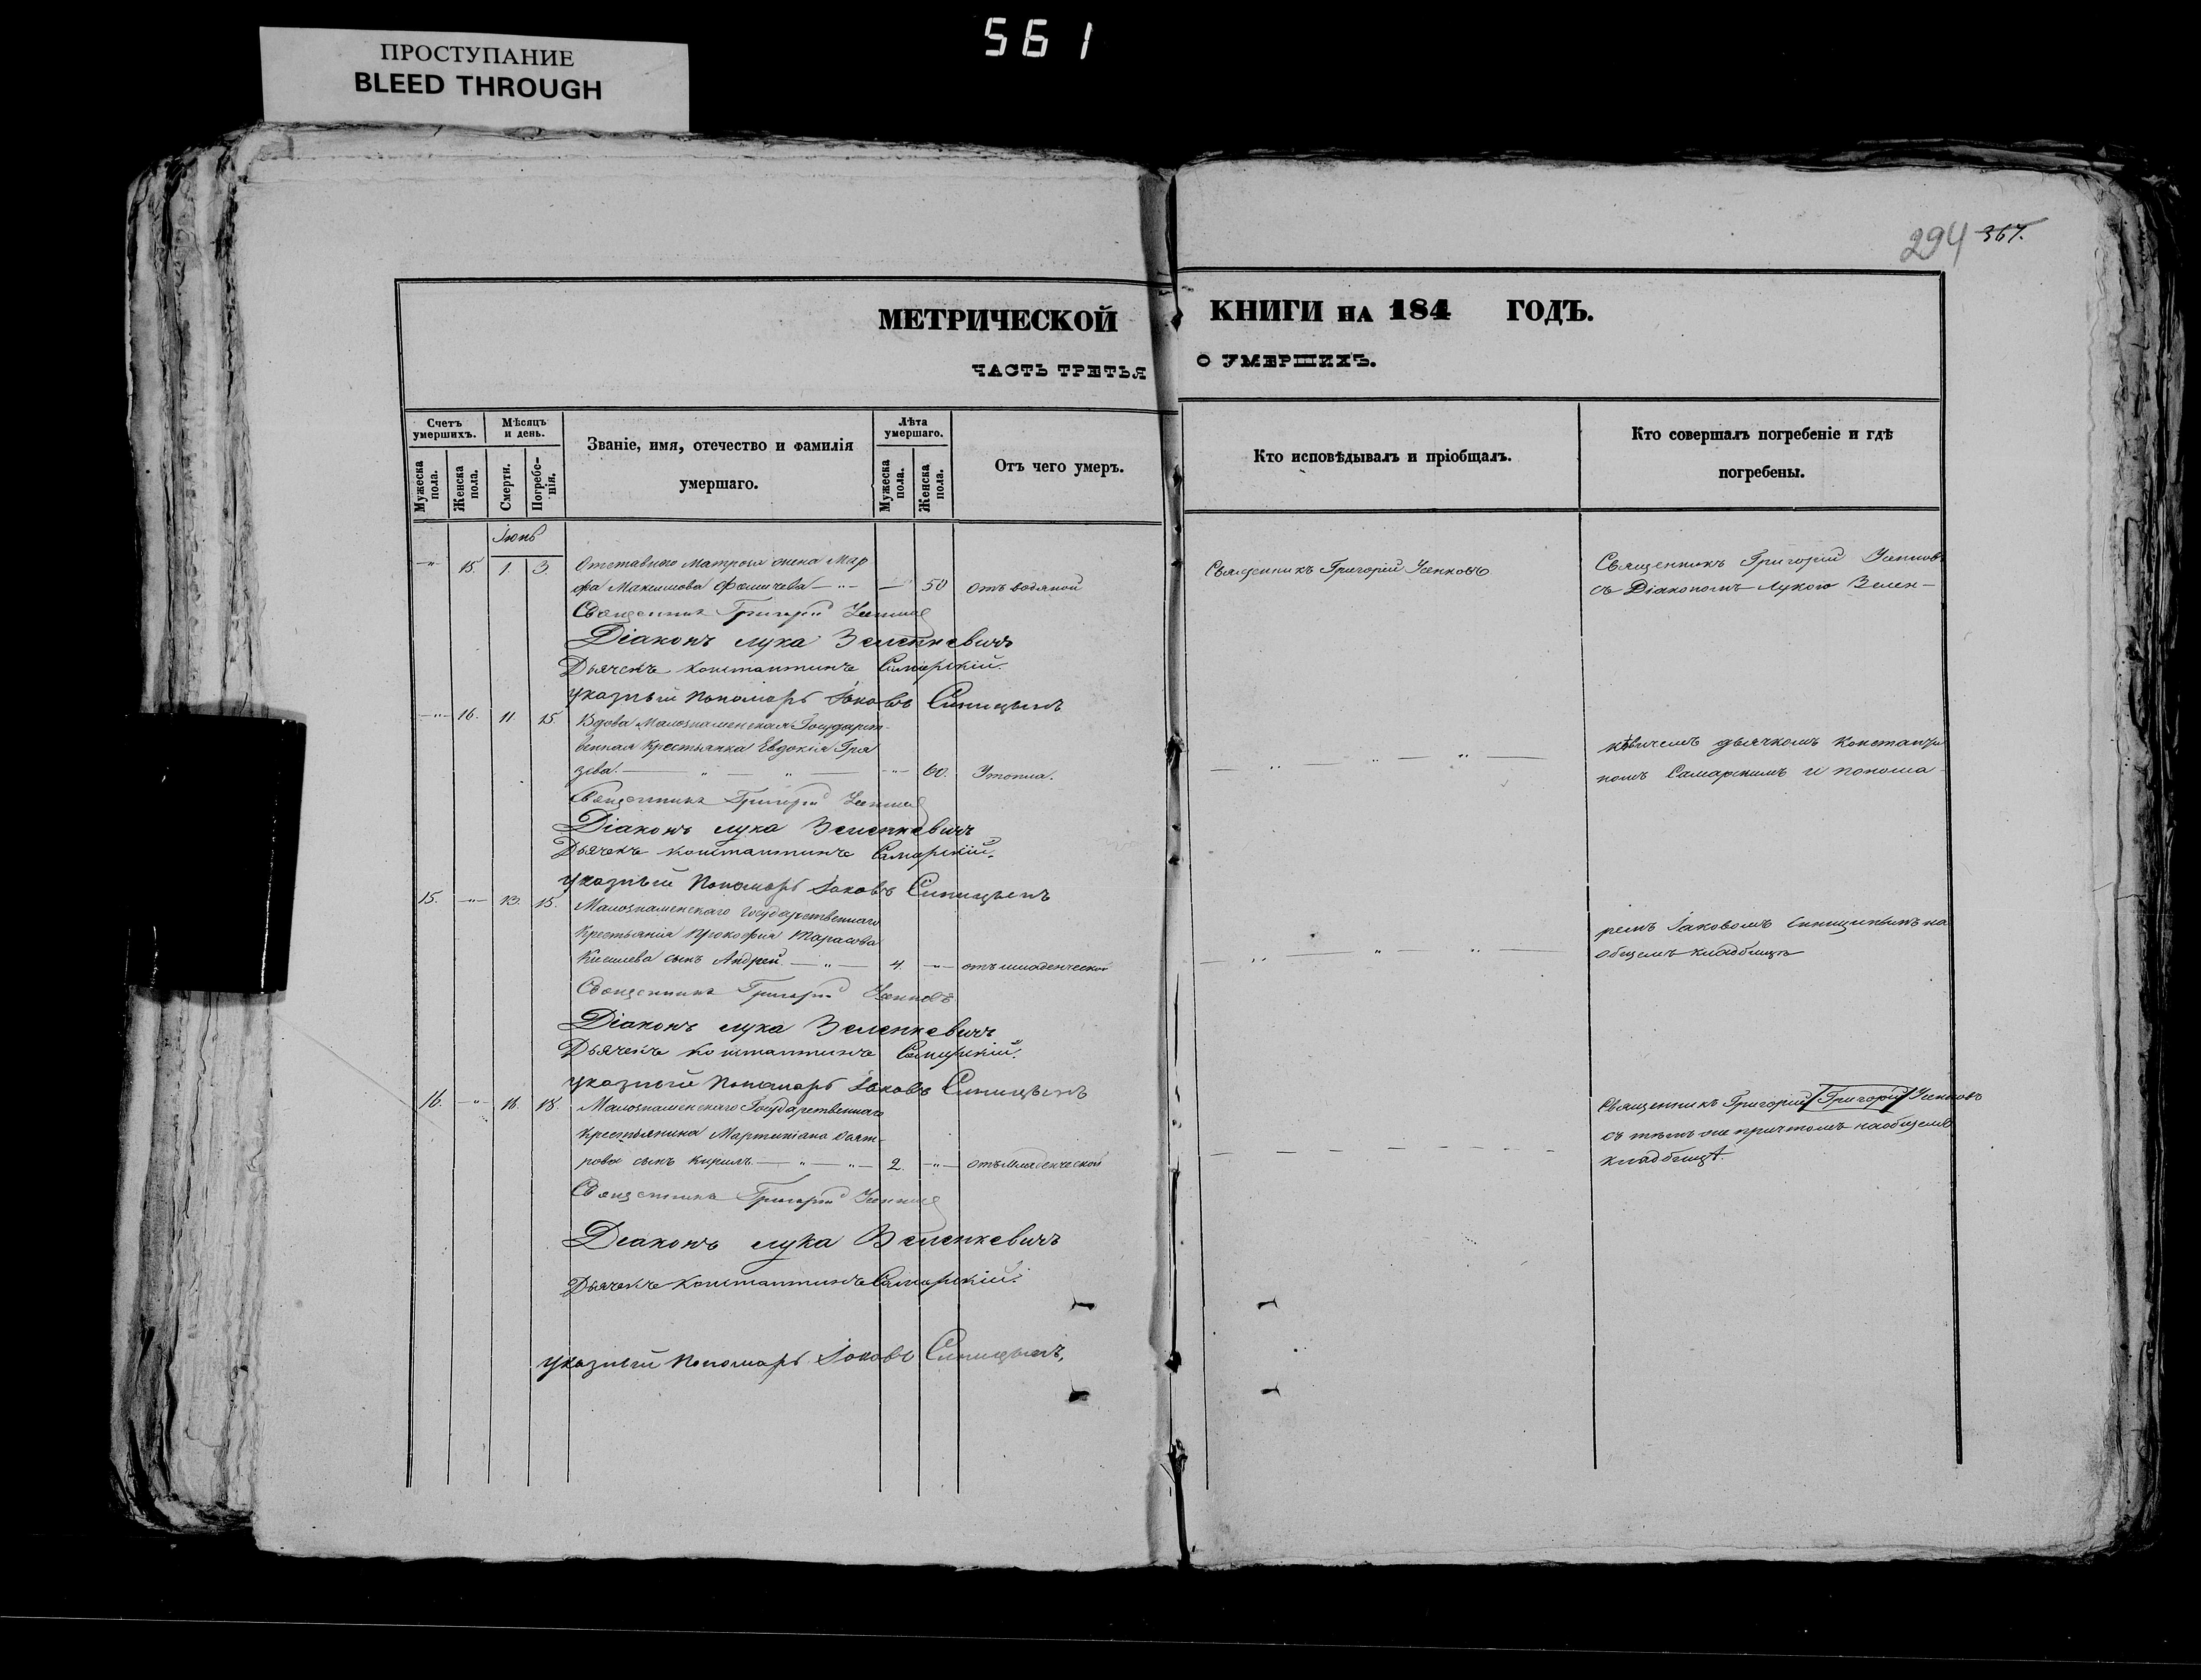 561
ПРОСТУПАНИЕ
BLEED THROUGH
294 367.
МЕТРИЧЕСКОЙ КНИГИ НА 184 ГОДЪ.
ЧАСТЬ ТРЕТЬЯ О УМЕРШИХЪ.
Счетъ умершихъ.
Мѣсяцъ и день.
Званіе, имя, отечество и фамилія умершаго.
Лѣта умершаго.
Отъ чего умеръ.
Кто исповѣдывалъ и пріобщалъ.
Кто совершалъ погребеніе и гдѣ погребены.
Мужеска пола.
Женска пола.
Смерти.
Погребенія.
Мужеска пола.
Женска пола.
Іюнь
-"- 15. 1 3. Отставнаго Матроса жена Мар
фа Максимова Фомичева -"- — 50 отъ водяной
Священникъ Григорій Усенковъ
Священникъ Григорій Усенковъ
съ Діакономъ Лукою Зелен-
Священникъ Григорій
Діаконъ Лука Зеленкевичъ
Дьячекъ Константинъ Самарскій.
указный Пономарь Іаковъ Синицынъ
-"- 16. 11. 15. Вдова Малознаменская Государст-
венная Крестьянка Евдокія
-"- 60. Утопла.
кѣвичемъ дьячкомъ Константи
номъ Самарскимъ и понома-
Священникъ Григорій
Діаконъ Лука Зеленкевичъ
Дьячекъ Константинъ Самарскій.
указный Пономарь Іаковъ Синицынъ
15. -"- 13. 15. Малознаменскаго Государственнаго
Крестьянина Прокофия Тарасова
Киселева сынъ Андрей. -"- 4. -"- отъ младенческой
ремъ Іаковомъ Синицинымъ на
общемъ кладбищѣ
Священникъ Григорій Усенковъ
Діаконъ Лука Зеленкевичъ
Дьячекъ Константинъ Самарскій.
указный Пономарь Іаковъ Синицынъ
16. -"- 16. 18. Малознаменскаго Государственнаго
Крестьянина Мартиніана
рова сынъ Кирилъ. -"- -"- 2. -"- отъ младенческой
Священникъ Григорій /Григорій/ Усенковъ
съ тѣмъ же причтомъ на общемъ
кладбищѣ.
Священникъ Григорій
Деаконъ Лука Зеленкевичъ
Дьячекъ Константинъ Самарскій.
указный Пономарь Іаковъ Синицынъ,